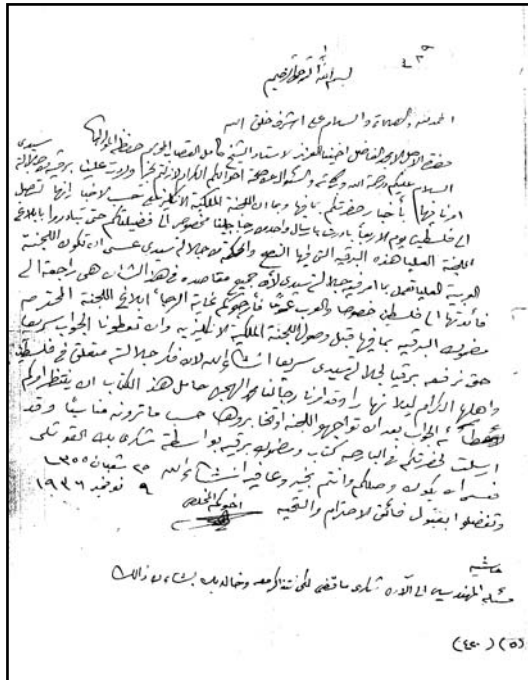 بسم الله الرحمن الرحيم
الحمد لله والصلاة والسلام على اشرف خلق الله
حضرة الاجل الامجد الفاضل اخينا العزيز الاستاذ الشيخ كامل القصاب المحترم حفظه المولى
السلام عليكم ورحمة الله وبركاته والسؤال عن صحة اخوانكم الكرام لا زلتم بخير وردت علينا برقية من جلالة سيدي
امرنا بها بأخبار حضرتكم بما فيها وبما ان اللجنة الملكية الانكليزية حسب الاخبار انها تصل
الى فلسطين يوم الاربعا بادرت بارسال واحد من رجالنا مخصوص الى فضيلتكم حتى تبادروا بابلاغ
اللجنة العليا هذه البرقية التي فيها النصح والحكمة من جلالة سيدي عسى ان تكون اللجنة
العربية العليا تعمل بما امر فيه جلالة سيدي لأن جميع مقاصده في هذا الشأن هي راجعة الى
فائدتها الى فلسطين خصوصا والعرب عموما فأرجوكم غاية الرجاء ابلاغ اللجنة المحترمه
مضمون البرقيه بما فيها قبل وصول اللجنة الملكية الانكليزيه وان تعطونا الجواب سريعا
حتى نرفعه برقيا لجلالة سيدي سريعا انشاء الله لان فكر جلالته متعلق في فلسطين
واهلها الكرام ليلا نهارا وقد امرنا رجالنا حامل هذا الكتاب ان ينتظر امركم
لاعطائه الجواب بعد ان تواجهوا اللجنة او تخابروها حسب ما ترونه مناسبا وقد
ارسلت لحضرتكم في البارحه كتاب ومضمون برقيه بواسطة شكري بك القوتلي
فعسى ان يكون وصلكم وانتم بخير وعافيه انشاء الله ٢٥ شعبان ١٣٥٥
وتفضلوا بقبول فائق الاحترام والتحيه ٩ نوفمبر ١٩٣٦
اخوكم المخلص
حاشيه
مسئلة المهندسين الى الآن شكري ما قضى لكي نتذاكر معه وخالد بك بشاءن ذالك
(٥) (٤٣٠)